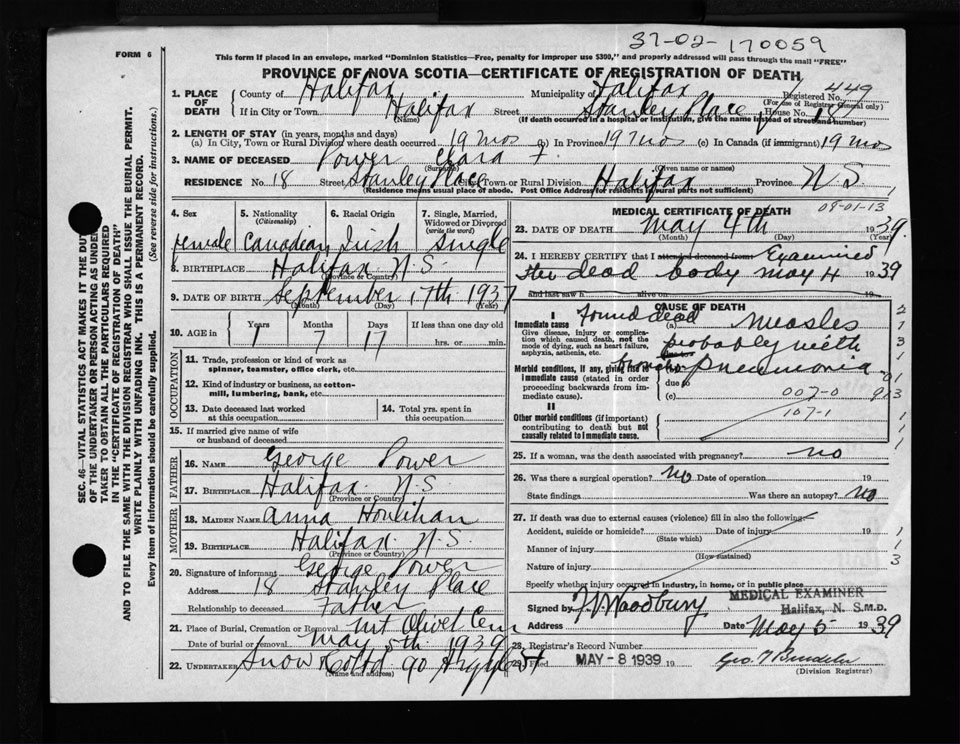 37-02-170059
FORM 6
This form if placed in an envelope, marked "Dominion Statistics—Free, penalty for improper use $300," and properly addressed will pass through the mail "FREE"
PROVINCE OF NOVA SCOTIA—CERTIFICATE OF REGISTRATION OF DEATH
SEC. 46—VITAL STATISTICS ACT MAKES IT THE DUTY
OF THE UNDERTAKER OR PERSON ACTING AS UNDER-
TAKER TO OBTAIN ALL THE PARTICULARS REQUIRED
IN THE "CERTIFICATE OF DEATH"
AND TO FILE THE SAME WITH THE DIVISION REGISTRAR WHO SHALL ISSUE THE BURIAL PERMIT.
WRITE PLAINLY WITH UNFADING INK. THIS IS A PERMANENT RECORD.
Every item of information should be carefully supplied. (See reverse side for instructions.)
1. PLACE OF DEATH County of Halifax Municipality of Halifax Registered No. 449
(For use of Registrar General only)
If in City or Town Halifax Street Stanley Place House No. 18
(Name) (If death occurred in a hospital or institution, give the name instead of street and number)
2. LENGTH OF STAY (in years, months and days)
(a) In City, Town or Rural Division where death occurred 19 mos (b) In Province 19 mos (c) In Canada (if immigrant) 19 mos
3. NAME OF DECEASED Power Clara F
(Surname) (Given name or names)
RESIDENCE No. 18 Street Stanley Place City, Town or Rural Division Halifax Province N.S.
(Residence means usual place of abode. Post Office Address for residents in rural parts not sufficient)
4. Sex female
5. Nationality (Citizenship) Canadian
6. Racial Origin Irish
7. Single, Married, Widowed or Divorced (write the word) Single
8. BIRTHPLACE Halifax N.S.
(Province or Country)
9. DATE OF BIRTH September 17th 1937
(Month) (Day) (Year)
10. AGE in Years 1 Months 7 Days 17 If less than one day old hrs. or min.
OCCUPATION
11. Trade, profession or kind of work as spinner, teamster, office clerk, etc.
12. Kind of industry or business, as cotton-mill, lumbering, bank, etc.
13. Date deceased last worked at this occupation
14. Total yrs. spent in this occupation
15. If married give name of wife or husband of deceased
FATHER
16. NAME George Power
17. BIRTHPLACE Halifax N.S.
(Province or Country)
MOTHER
18. MAIDEN NAME Anna Houlihan
19. BIRTHPLACE Halifax N.S.
(Province or Country)
20. Signature of informant George Power
Address 18 Stanley Place
Relationship to deceased Father
21. Place of Burial, Cremation or Removal Mt Olivet Cem
Date of burial or removal May 5th 1939
22. UNDERTAKER Snow & Co Ltd 90 Argyle St
(Name and address)
MEDICAL CERTIFICATE OF DEATH
09-01-13
23. DATE OF DEATH May 4th 1939
(Month) (Day) (Year)
24. I HEREBY CERTIFY that I attended deceased from Examined
Her dead body May 4 1939
and last saw h alive on 19
CAUSE OF DEATH
I found dead
Immediate cause (a) Measles
Give disease, injury or complication which caused death, not the mode of dying, such as heart failure, asphyxia, asthenia, etc.
probably with
Morbid conditions, if any, giving rise to immediate cause (stated in order proceeding backwards from immediate cause).
broncho Pneumonia
due to
(c) 007-0
107-1
II
Other morbid conditions (if important) contributing to death but not causally related to immediate cause.
25. If a woman, was the death associated with pregnancy? no
26. Was there a surgical operation? no Date of operation 19
State findings Was there an autopsy? no
27. If death was due to external causes (violence) fill in also the following:—
Accident, suicide or homicide? Date of injury 19
(State which)
Manner of injury
(How sustained)
Nature of injury
Specify whether injury occurred in industry, in home, or in public place
Signed by Woodbury MEDICAL EXAMINER
Halifax, N. S. M.D.
Address Date May 5 1939
28. Registrar's Record Number
29. Filed MAY - 8 1939 19
(Division Registrar)